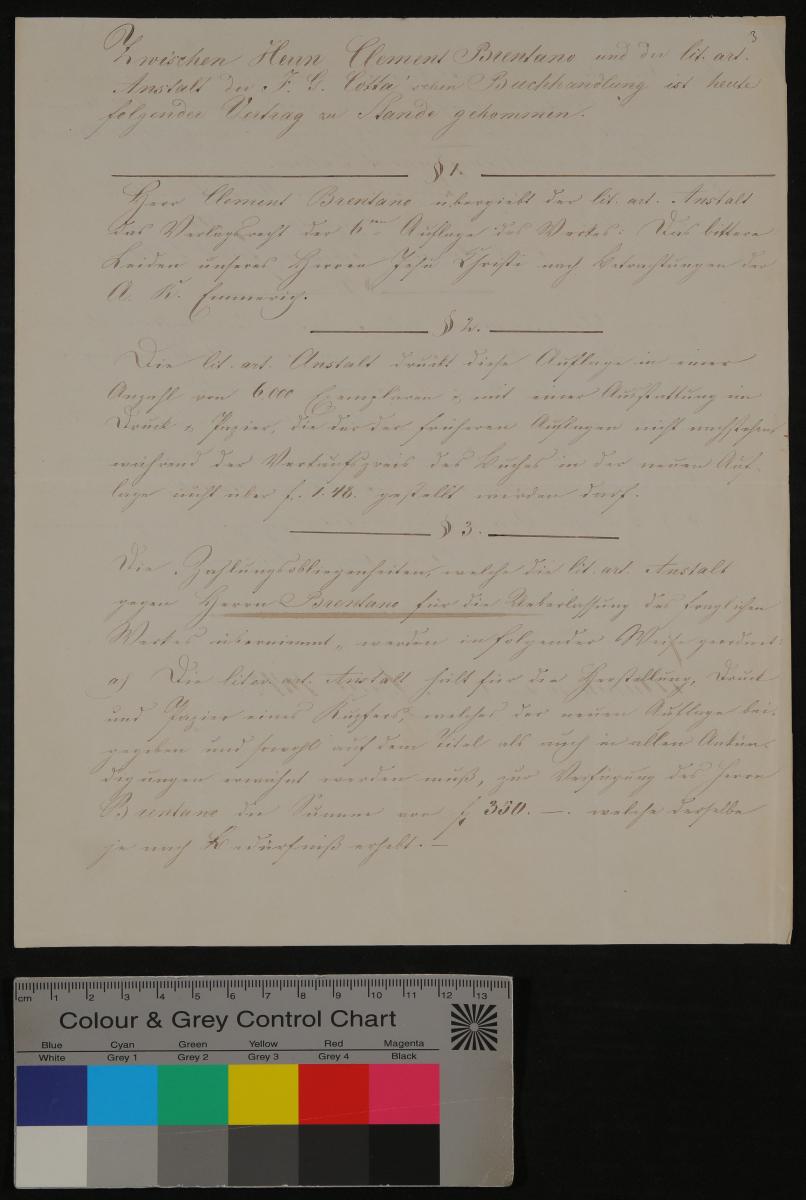 3
Zwischen Herrn Clement Brentano und der lit. art.
Anstalt der J. G. Cotta'schen Buchhandlung ist heute
folgender Vertrag zu Stande gekommen.
§ 1.
Herr Clement Brentano übergiebt der lit. art. Anstalt
das Verlagsrecht der 6ten Auflage des Werkes: Das bittere
Leiden unseres Herren Jesu Christi nach Betrachtungen der
A. K. Emmerich.
§ 2.
Die lit. art. Anstalt druckt diese Auflage in einer
Anzahl von 6000 Exemplaren & mit einer Ausstattung in
Druck & Papier, die der der früheren Auflagen nicht nachstehen
während der Verkaufspreis des Buches in der neuen Auf-
lage nicht über f. 1. 48. gestellt werden darf.
§ 3.
Die Zahlungsobliegenheiten, welche die lit. art. Anstalt
gegen Herrn Brentano für die Ueberlassung des fraglichen
Werkes übernimmt, werden in folgender Weise geordnet:
a) Die liter. art. Anstalt hält für die Herstellung, Druck
und Papier eines Kupfers, welches der neuen Auflage bei-
gegeben und sowohl auf dem Titel als auch in allen Ankün-
digungen erwähnt werden muß, zur Verfügung des Herrn
Brentano die Summe von f 350. —. welche derselbe
je nach Bedürfniß erhebt. —
cm 1 2 3 4 5 6 7 8 9 10 11 12 13
Colour & Grey Control Chart
Blue Cyan Green Yellow Red Magenta
White Grey 1 Grey 2 Grey 3 Grey 4 Black